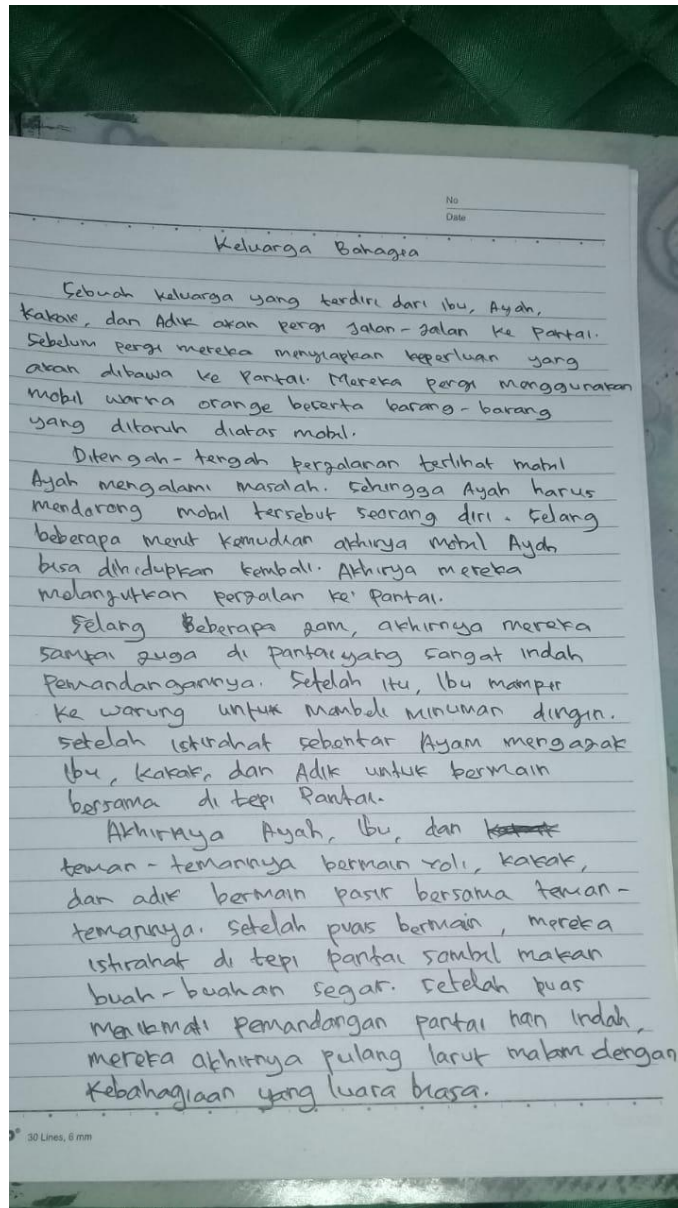 No
Date
Keluarga Bahagia
Sebuah keluarga yang terdiri dari Ibu, Ayah,
Kakak, dan Adik akan pergi Jalan-Jalan ke Pantai.
Sebelum pergi mereka menyiapkan keperluan yang
akan dibawa ke Pantai. Mereka pergi menggunakan
mobil warna orange beserta barang-barang
yang ditaruh diatas mobil.
Ditengah-tengah perjalanan terlihat mobil
Ayah mengalami masalah. Sehingga Ayah harus
mendorong mobil tersebut seorang diri. Selang
beberapa menit kemudian akhirya mobil Ayah
bisa dihidupkan kembali. Akhirya mereka
melanjutkan perjalan ke pantai.
Selang Beberapa jam, akhirnya mereka
sampai juga di pantai yang sangat indah
Pemandangannya. Setelah itu, Ibu mampir
ke warung untuk membeli minuman dingin.
setelah istirahat sebentar Ayam mengajak
Ibu, Kakak, dan Adik untuk bermain
bersama di tepi Pantai.
Akhirnya Ayah, Ibu, dan
teman-temannya bermain voli, kakak,
dan adik bermain pasir bersama teman-
temannya. setelah puas bermain, mereka
istirahat di tepi pantai sambil makan
buah-buahan segar. setelah puas
menikmati pemandangan pantai nan indah,
mereka akhirnya pulang larut malam dengan
Kebahagiaan yang luara biasa.
30 Lines, 6 mm